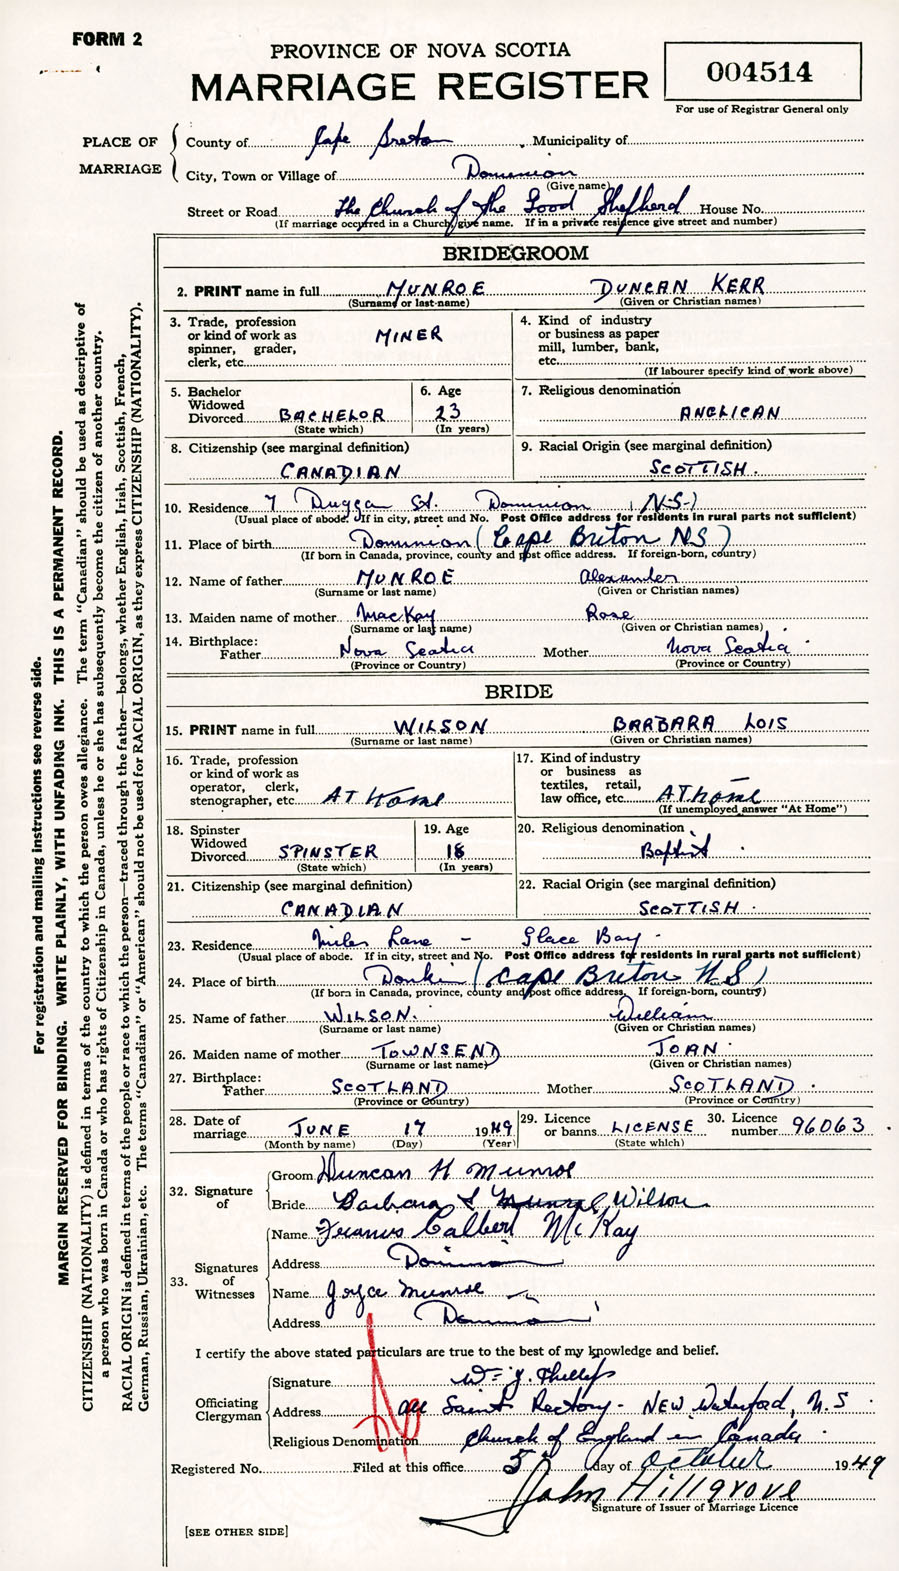 FORM 2
PROVINCE OF NOVA SCOTIA
MARRIAGE REGISTER
004514
For use of Registrar General only
PLACE OF MARRIAGE
County of Cape Breton Municipality of
City, Town or Village of Dominion
(Give name)
Street or Road The Church of the Good Shepherd House No.
(If marriage occurred in a Church, give name. If in a private residence give street and number)
BRIDEGROOM
2. PRINT name in full MUNROE DUNCAN KERR
(Surname or last name) (Given or Christian names)
3. Trade, profession 4. Kind of industry
or kind of work as MINER or business as paper
spinner, grader, mill, lumber, bank,
clerk, etc. etc.
(If labourer specify kind of work above)
5. Bachelor 6. Age 7. Religious denomination
Widowed
Divorced BACHELOR 23 ANGLICAN
(State which) (In years)
8. Citizenship (see marginal definition) 9. Racial Origin (see marginal definition)
CANADIAN SCOTTISH.
10. Residence 7 Duggan St. Dominion (N.S.)
(Usual place of abode. If in city, street and No. Post Office address for residents in rural parts not sufficient)
11. Place of birth Dominion (Cape Briton NS)
(If born in Canada, province, county and post office address. If foreign-born, country)
12. Name of father MUNROE Alexander
(Surname or last name) (Given or Christian names)
13. Maiden name of mother MacKay Rose
(Surname or last name) (Given or Christian names)
14. Birthplace:
Father Nova Scotia Mother Nova Scotia
(Province or Country) (Province or Country)
BRIDE
15. PRINT name in full WILSON BARBARA LOIS
(Surname or last name) (Given or Christian names)
16. Trade, profession 17. Kind of industry
or kind of work as or business as
operator, clerk, textiles, retail,
stenographer, etc. AT Home law office, etc. AT home
(If unemployed answer "At Home")
18. Spinster 19. Age 20. Religious denomination
Widowed
Divorced SPINSTER 18 Baptist
(State which) (In years)
21. Citizenship (see marginal definition) 22. Racial Origin (see marginal definition)
CANADIAN SCOTTISH.
23. Residence Miles Lane - Glace Bay.
(Usual place of abode. If in city, street and No. Post Office address for residents in rural parts not sufficient)
24. Place of birth Donkin (Cape Briton N.S)
(If born in Canada, province, county and post office address. If foreign-born, country)
25. Name of father WILSON. William
(Surname or last name) (Given or Christian names)
26. Maiden name of mother TOWNSEND JOAN.
(Surname or last name) (Given or Christian names)
27. Birthplace:
Father SCOTLAND Mother SCOTLAND.
(Province or Country) (Province or Country)
28. Date of marriage JUNE 17 1949 29. Licence or banns LICENSE 30. Licence number 96063.
(Month by name) (Day) (Year) (State which)
32. Signature of
Groom Duncan K Munroe
Bride Barbara L Munroe Wilson
33. Signatures of Witnesses
Name Francis Calbert McKay
Address Dominion
Name Joyce Munroe
Address Dominion
I certify the above stated particulars are true to the best of my knowledge and belief.
Officiating Clergyman
Signature W. J. Phillips
Address All Saints Rectory - NEW Waterford, N.S.
Religious Denomination Church of England in Canada.
Registered No. Filed at this office 5th day of October 1949
John Hillgrove
Signature of Issuer of Marriage Licence
[SEE OTHER SIDE]
For registration and mailing instructions see reverse side.
MARGIN RESERVED FOR BINDING. WRITE PLAINLY, WITH UNFADING INK. THIS IS A PERMANENT RECORD.
CITIZENSHIP (NATIONALITY) is defined in terms of the country to which the person owes allegiance. The term "Canadian" should be used as descriptive of
a person who was born in Canada or who has rights of Citizenship in Canada, unless he or she has subsequently become the citizen of another country.
RACIAL ORIGIN is defined in terms of the people or race to which the person—traced through the father—belongs, whether English, Irish, Scottish, French,
German, Russian, Ukrainian, etc. The terms "Canadian" or "American" should not be used for RACIAL ORIGIN, as they express CITIZENSHIP (NATIONALITY).